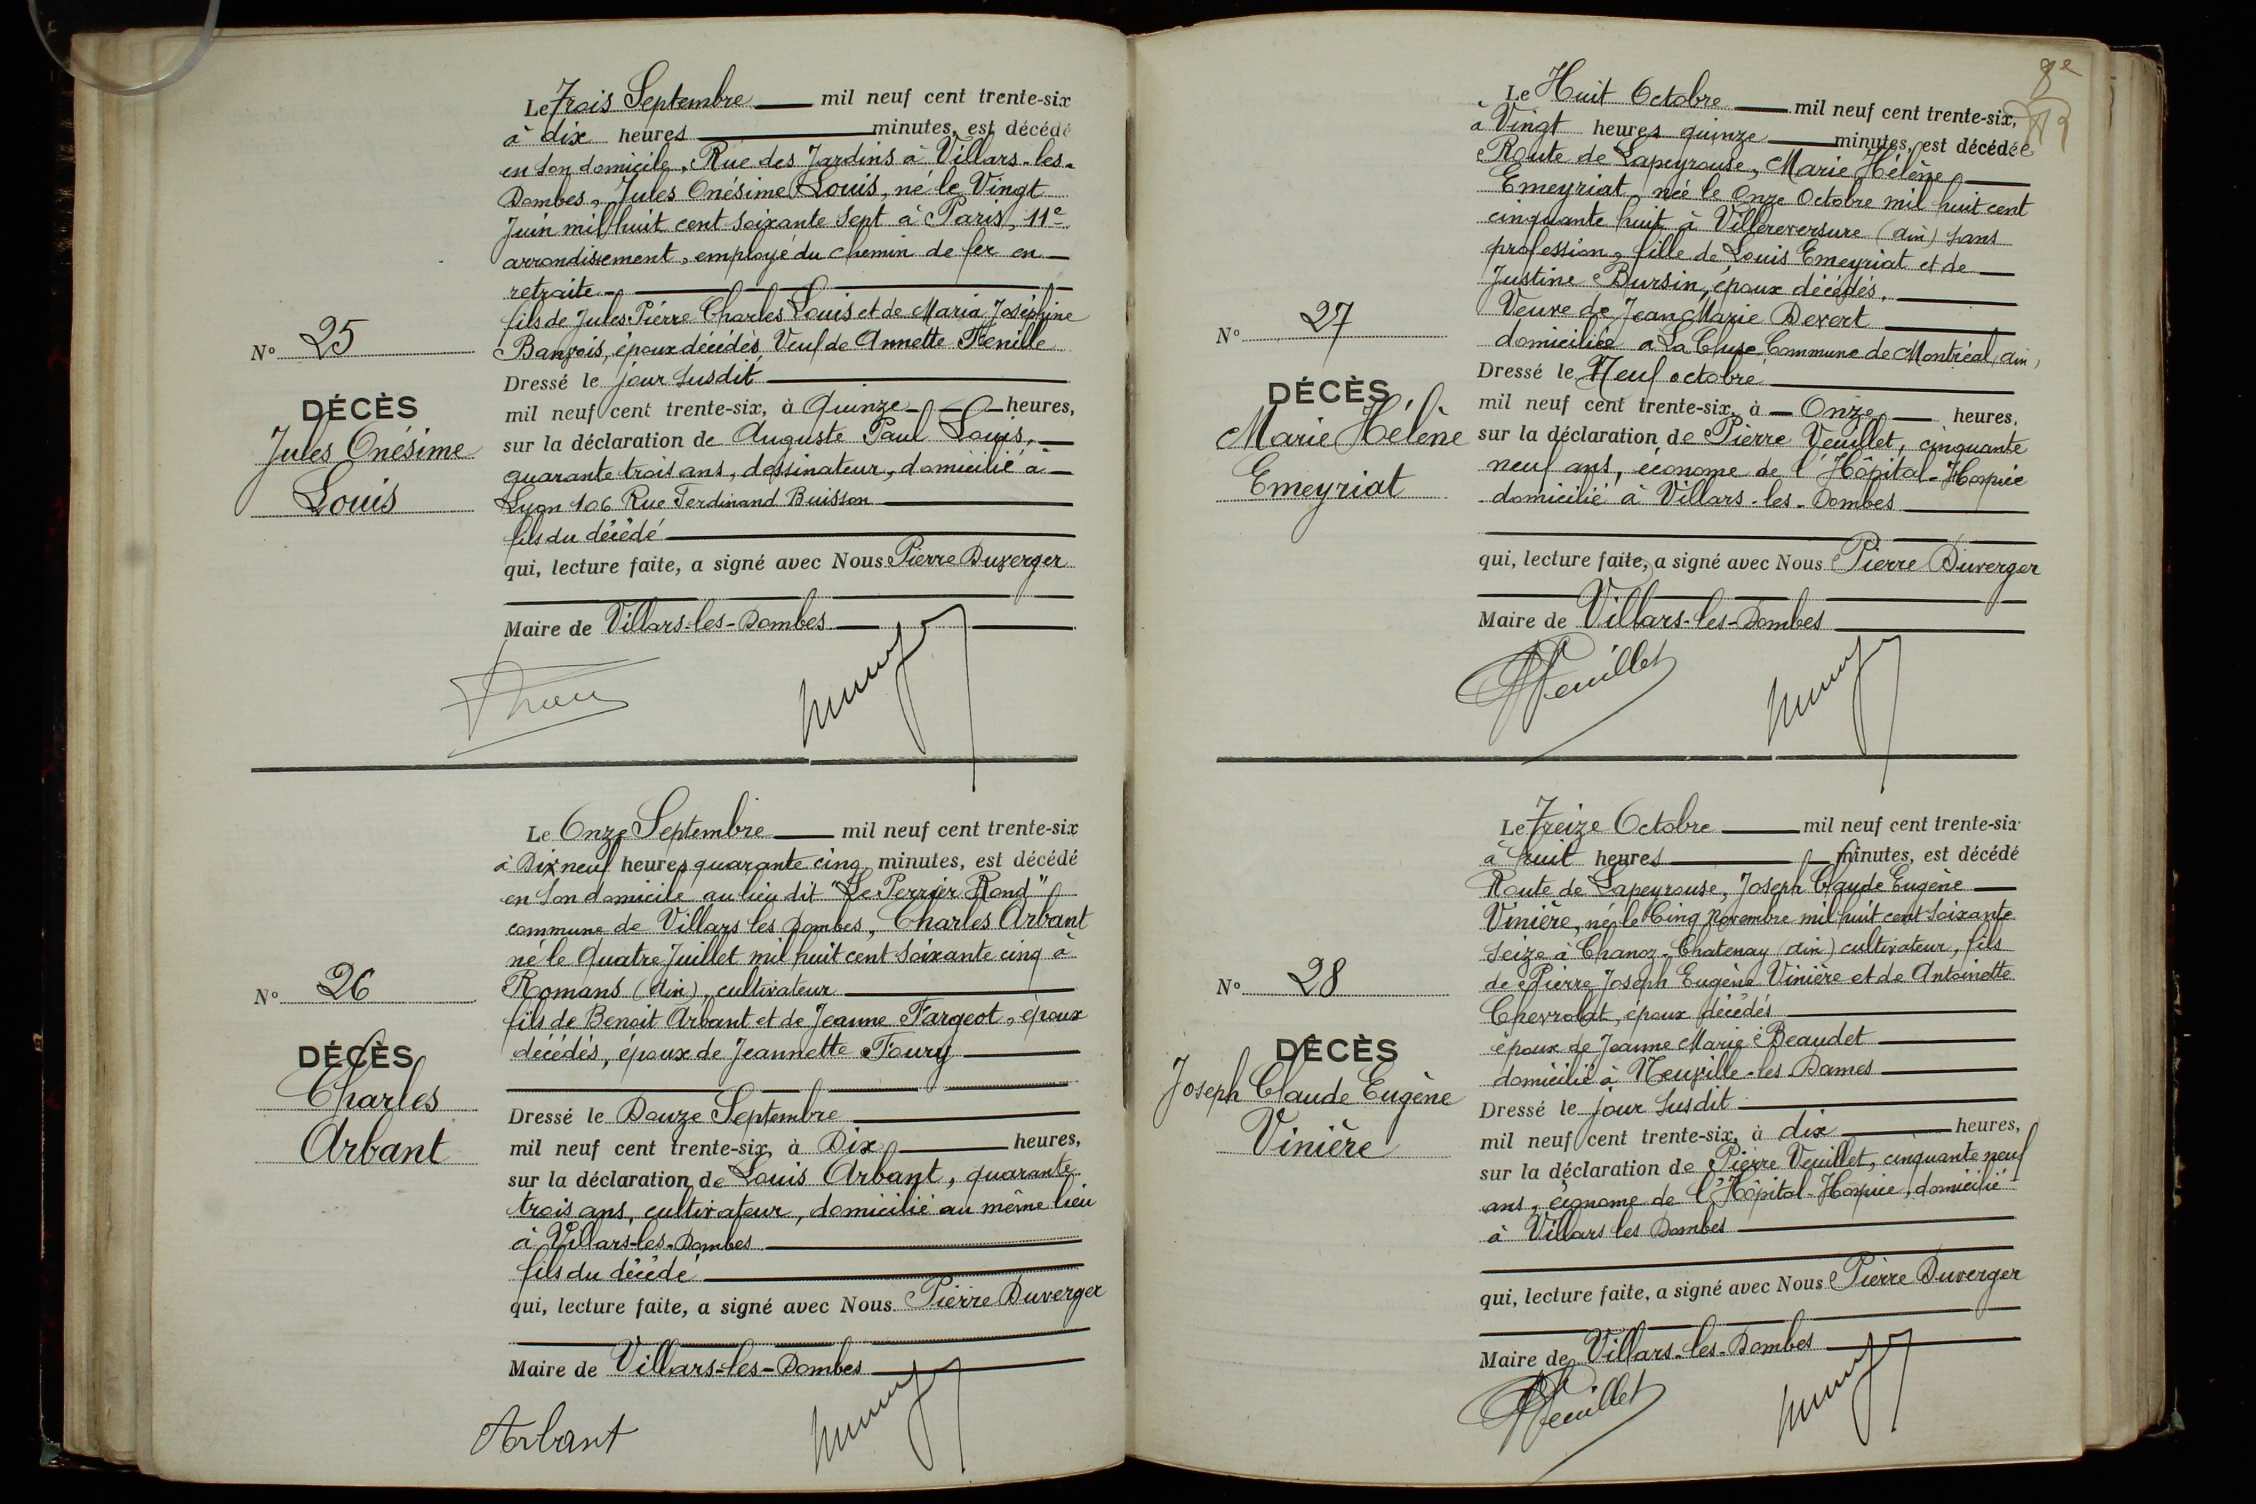 Le Trois Septembre mil neuf cent trente-six
à dix heures minutes, est décédé
en son domicile, Rue des Jardins à Villars-les-
Dombes, Jules Onésime Louis, né le Vingt
Juin mil huit cent soixante sept à Paris, 11e
arrondissement, employé du chemin de fer en
retraite
fils de Jules Pierre Charles Louis et de Maria Joséphine
époux décédés, Veuf de Annette Fenille
Dressé le jour susdit
mil neuf cent trente-six, à Quinze heures,
sur la déclaration de Auguste Paul Louis,
quarante trois ans, dessinateur, domicilié à
Lyon 106 Rue Ferdinand Buisson
fils du décédé
qui, lecture faite, a signé avec Nous Pierre Duverger
Maire de Villars-les-Dombes
N° 25
DÉCÈS
Jules Onésime
Louis
Le Onze Septembre mil neuf cent trente-six
à Dix neuf heures quarante cinq minutes, est décédé
en son domicile au lieu dit "Le Perrier Rond"
commune de Villars les Dombes, Charles Arbant
né le Quatre Juillet mil huit cent soixante cinq à
Romans (Ain), cultivateur
fils de Benoit Arbant et de Jeanne Fargeot, époux
décédés, époux de Jeannette Foury
Dressé le Douze Septembre
mil neuf cent trente-six, à Dix heures,
sur la déclaration de Louis Arbant, quarante
trois ans, cultivateur, domicilié au même lieu
à Villars-les-Dombes
fils du décédé
qui, lecture faite, a signé avec Nous Pierre Duverger
Maire de Villars-les-Dombes
Arbant
N° 26
DÉCÈS
Charles
Arbant
8e
Le Huit Octobre mil neuf cent trente-six,
à Vingt heures quinze minutes, est décédée
Route de Lapeyrouse, Marie Hélène
Emeyriat, née le Onze Octobre mil huit cent
cinquante huit à Villereversure (Ain) sans
profession, fille de Louis Emeyriat et de
Justine Bursin, époux décédés.
Veuve de Jean Marie Devert
domiciliée à La Cluse Commune de Montréal, Ain,
Dressé le Neuf octobre
mil neuf cent trente-six, à Onze heures,
sur la déclaration de Pierre Veuillet, cinquante
neuf ans, économe de l'Hôpital-Hospice
domicilié à Villars-les-Dombes
qui, lecture faite, a signé avec Nous Pierre Duverger
Maire de Villars-les-Dombes
PVeuillet
N° 27
DÉCÈS
Marie Hélène
Emeyriat
Le Treize Octobre mil neuf cent trente-six
à huit heures minutes, est décédé
Route de Lapeyrouse, Joseph Claude Eugène
Vinière, né le Cinq Novembre mil huit cent soixante
seize à Chanoz-Chatenay (Ain) cultivateur, fils
de Pierre Joseph Eugène Vinière et de Antoinette
Chevrolat, époux décédés
époux de Jeanne Marie Beaudet
domicilié à Neuville-les Dames
Dressé le jour susdit
mil neuf cent trente-six, à dix heures,
sur la déclaration de Pierre Veuillet, cinquante neuf
ans, économe de l'Hôpital-Hospice, domicilié
à Villars les Dombes
qui, lecture faite, a signé avec Nous Pierre Duverger
Maire de Villars-les-Dombes
PVeuillet
N° 28
DÉCÈS
Joseph Claude Eugène
Vinière